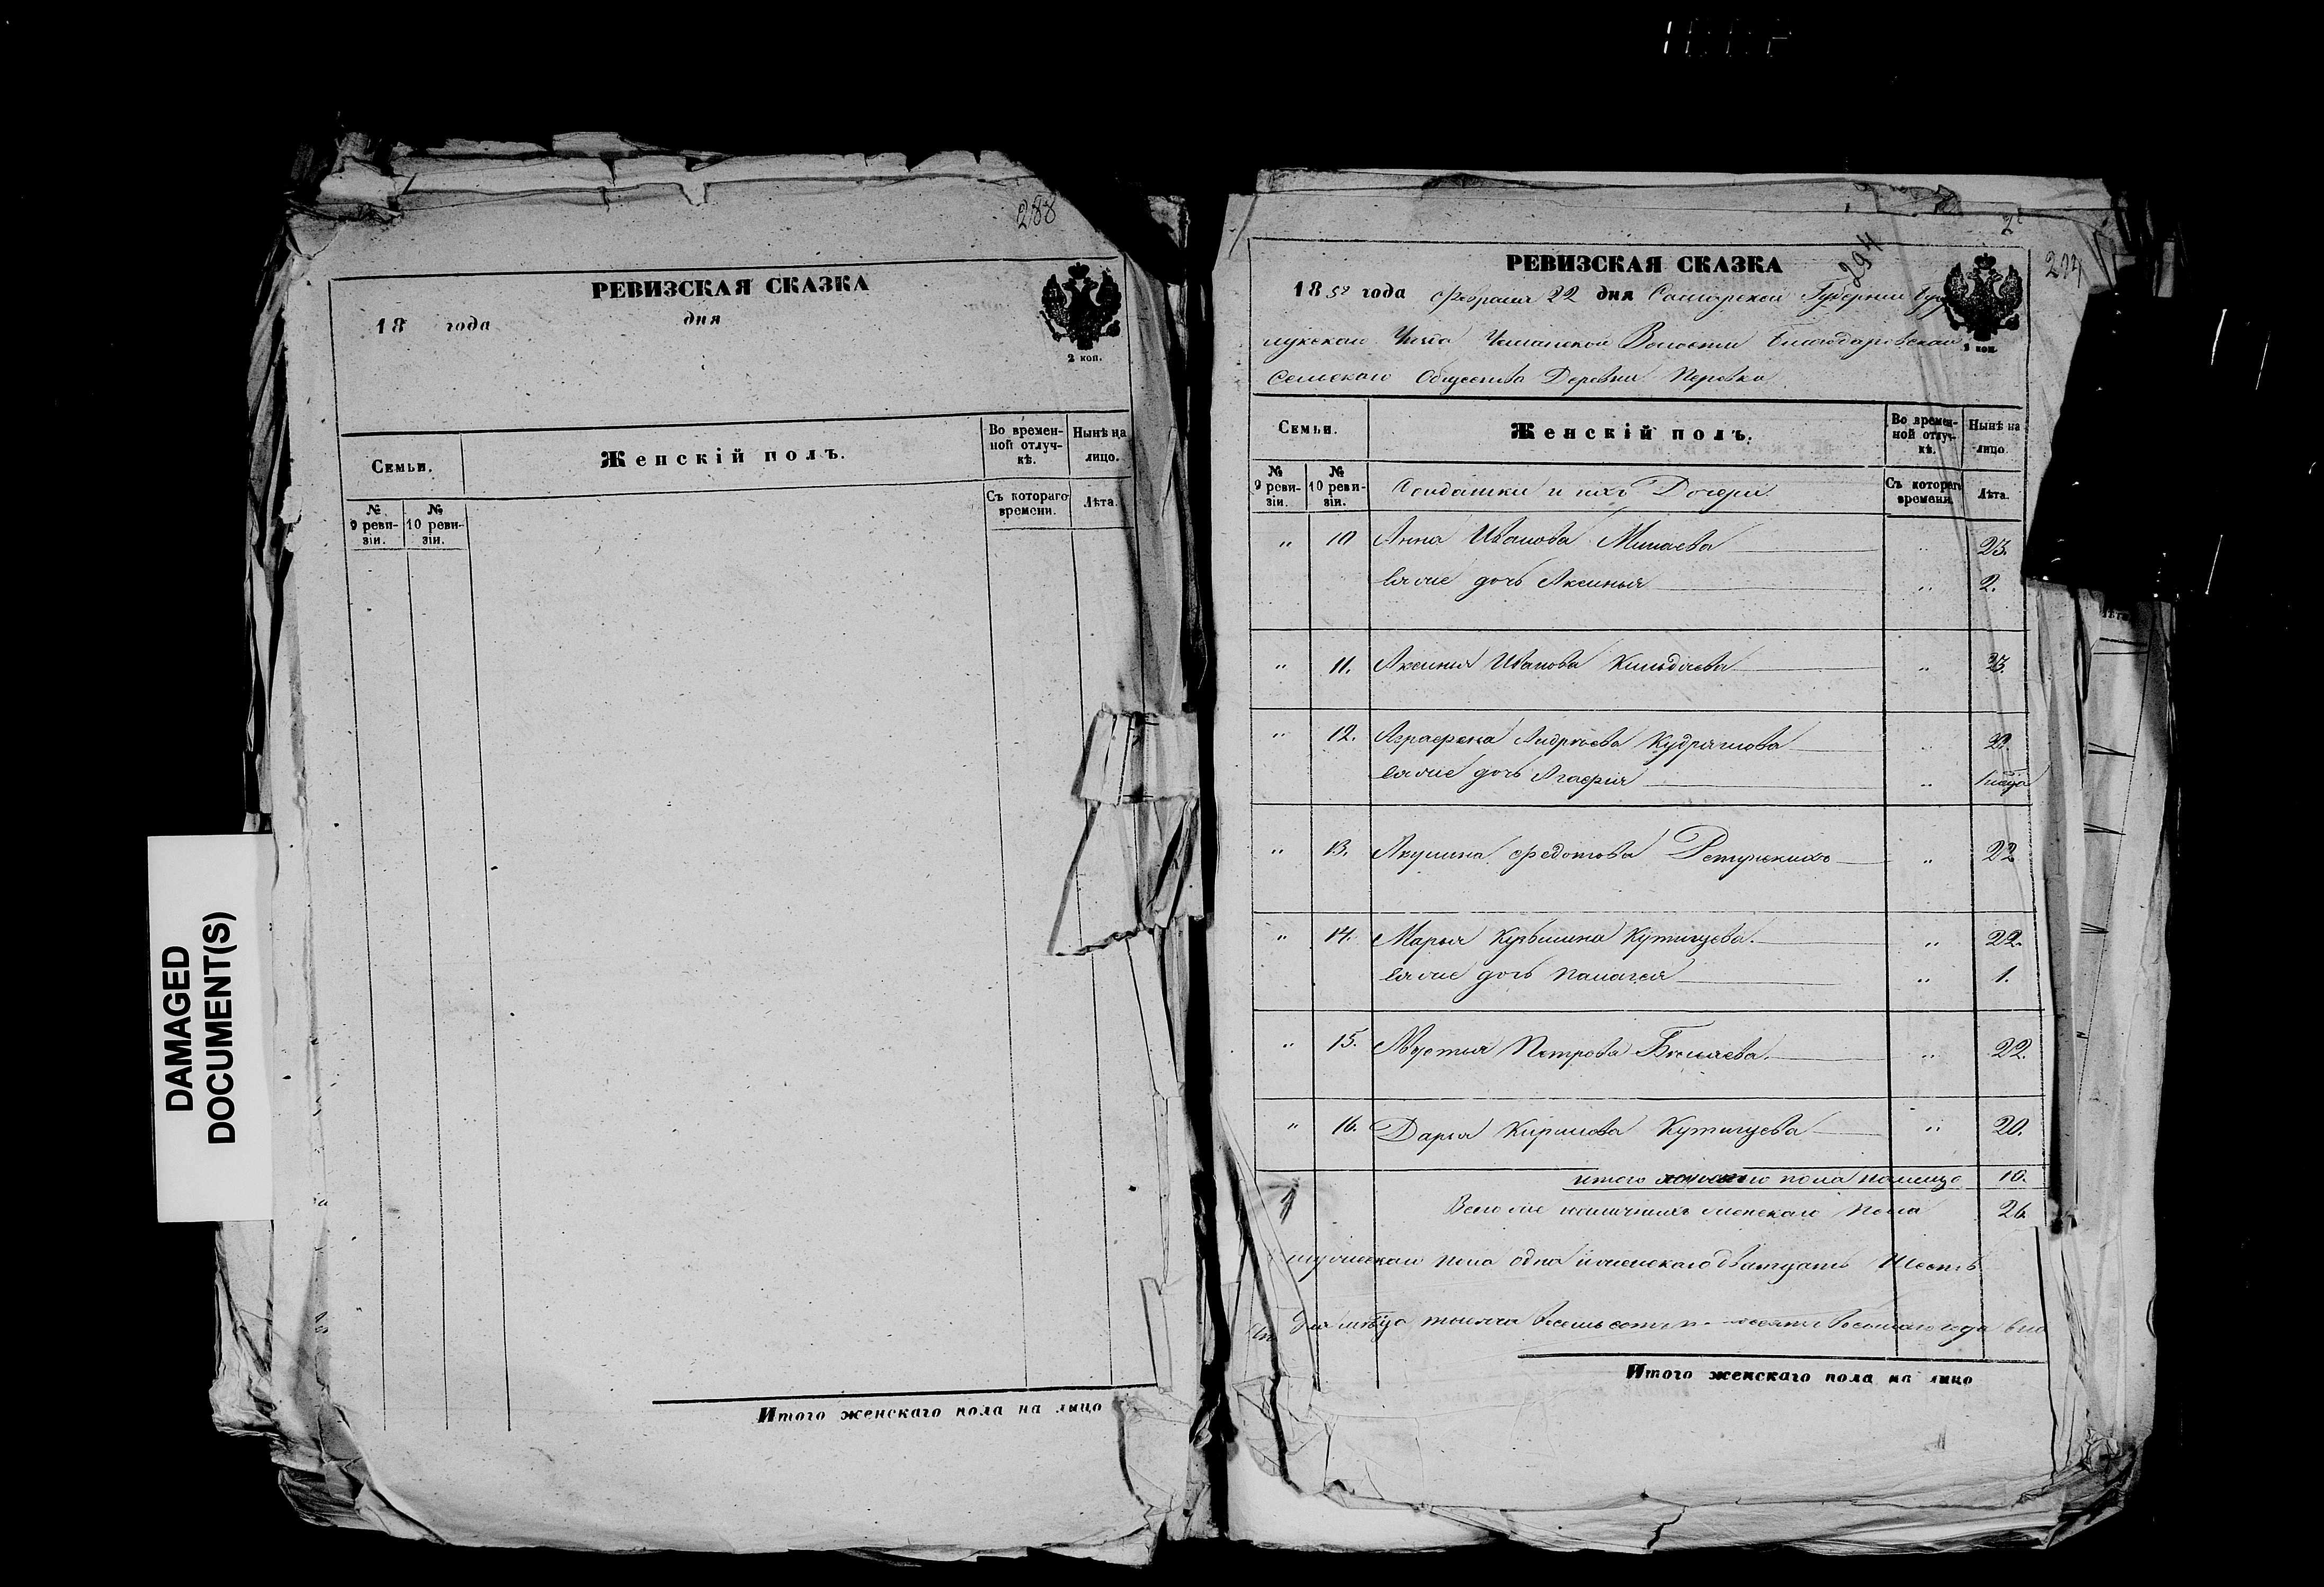 DAMAGED
DOCUMENT(S)
288
РЕВИЗСКАЯ СКАЗКА
18 года дня
2 коп.
Семьи.
Женскій полъ.
Во времен-
ной отлуч-
кѣ.
Нынѣ на
лицо.
№
9 реви-
зіи.
№
10 реви-
зіи.
Съ котораго
времени.
Лѣта.
Итого женскаго пола на лицо
294
РЕВИЗСКАЯ СКАЗКА
1858 года Февраля 22 дня Самарской Губерніи Бузу
лукскаго Уезда Волости Благодаровскаго
2 коп.
Сельскаго Общества Деревни Перовка
Семьи.
Женскій полъ.
Во времен-
ной отлуч-
кѣ.
Нынѣ на
лицо
№
9 реви-
зіи.
№
10 реви-
зіи.
Солдатки и ихъ Дочери
Съ котораго
времени.
Лѣта.
" 10 Анна Иванова Минаева " 23.
ея же дочь Аксинья " 2.
" 11. Аксинья Иванова Кильдяева " 23.
" 12. Аграфена Андреева Кудряшова "
ея же дочь Агафия "
" 13. Акулина Федотова " 22
" 14. Марья Кузьмина Кутлугуева. " 22.
ея же дочь Палагея " 1.
" 15. Петрова Беляева. " 22.
" 16. Дарья Кирилова Кутлугуева " 20.
итого женскаго пола налицо 10.
Всего же наличныхъ женскаго пола 26.
мужескаго пола одна и женскаго двадцать шесть
тысяча восемь сотъ восьмаго года
Итого женскаго пола на лицо